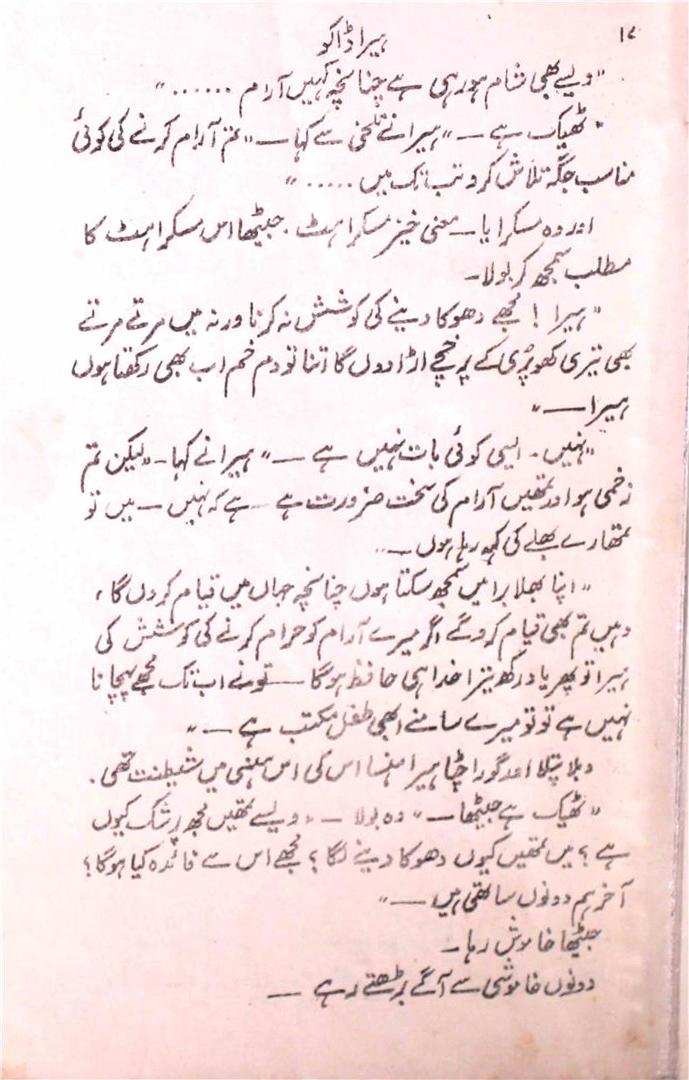 ۱۷
ہیرا ڈاکو
"ویسے بھی شام ہو رہی ہے چنانچہ کہیں آرام ......"
"ٹھیک ہے — "ہیرا نے تلخی سے کہا — "تم آرام کرنے کی کوئی
مناسب جگہ تلاش کرو تب تک میں ....."
اور وہ مسکرایا — معنی خیز مسکراہٹ. جیٹھا اس مسکراہٹ کا
مطلب سمجھ کر بولا —
"ہیرا ! مجھے دھوکا دینے کی کوشش نہ کرنا ورنہ میں مرتے مرتے
بھی تیری کھوپڑی کے پرخچے اڑا دوں گا اتنا تو دم خم اب بھی رکھتا ہوں
ہیرا — "
"نہیں۔ ایسی کوئی بات نہیں ہے — " ہیرا نے کہا۔ "لیکن تم
زخمی ہو اور تمھیں آرام کی سخت ضرورت ہے — ہے کہ نہیں — میں تو
تمھارے بھلے کی کہہ رہا ہوں — "
"اپنا بھلا برا میں سمجھ سکتا ہوں چنانچہ جہاں میں قیام کروں گا،
وہیں تم بھی قیام کرو گے اگر میرے آرام کو حرام کرنے کی کوشش کی
ہیرا تو پھر یاد رکھ تیرا خدا ہی حافظ ہوگا — تو نے اب تک مجھے پہچانا
نہیں ہے تو تو میرے سامنے ابھی طفل مکتب ہے — "
دبلا پتلا اور گورا چٹا ہیرا ہنسا اس کی اس ہنسی میں شیطنت تھی.
"ٹھیک ہے جیٹھا — " وہ بولا — "ویسے تمھیں مجھ پر شک کیوں
ہے ؟ میں تمھیں کیوں دھوکا دینے لگا ؟ مجھے اس سے فائدہ کیا ہوگا؟
آخر ہم دونوں ساتھی ہیں — "
جیٹھا خاموش رہا —
دونوں خاموشی سے آگے بڑھتے رہے —